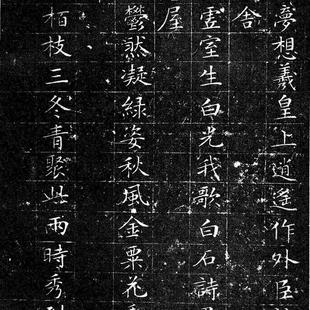 夢想羲皇上逍遙作外臣
舍
虛室生白光我歌白石詩
屋
鬱然凝綠姿秋風金粟花
栢枝三冬青聚此兩時秀